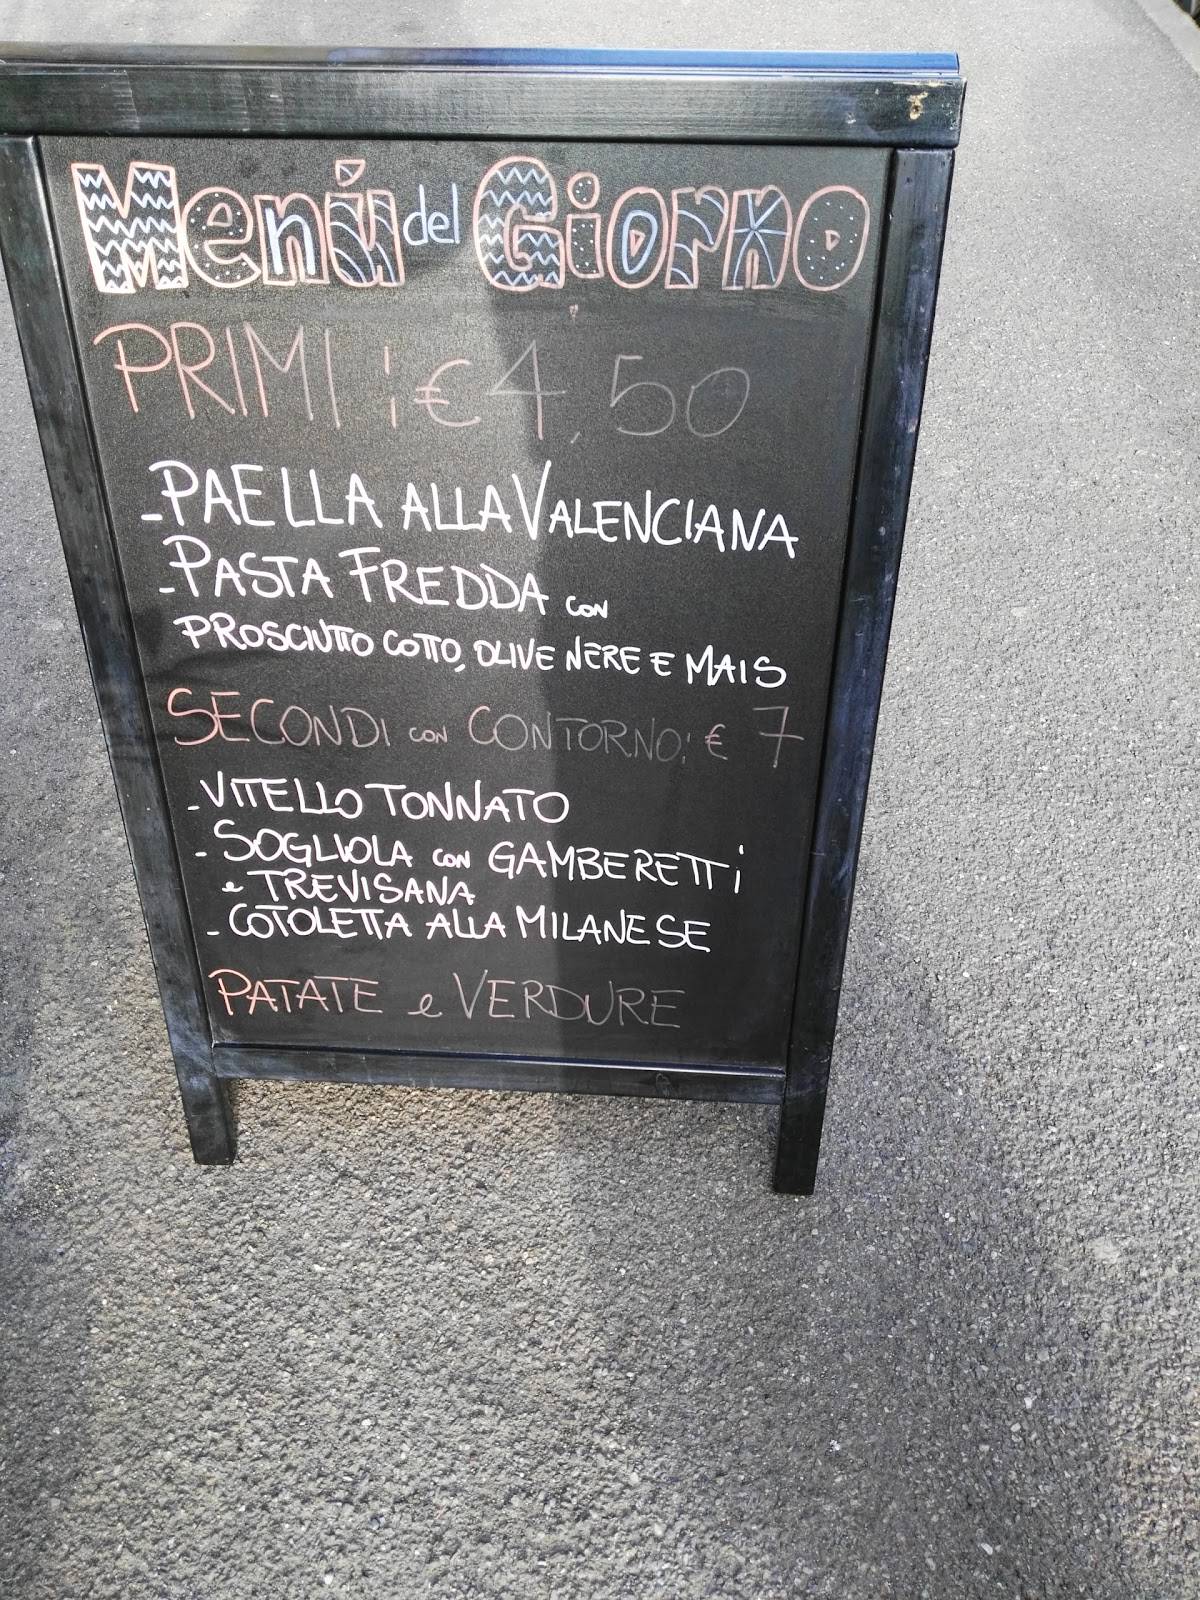 Menù del Giorno
PRIMI: € 4,50
- PAELLA ALLA VALENCIANA
- PASTA FREDDA CON
PROSCIUTTO COTTO, OLIVE NERE E MAIS
SECONDI CON CONTORNO: € 7
- VITELLO TONNATO
- SOGLIOLA CON GAMBERETTI
e TREVISANA
- COTOLETTA ALLA MILANESE
PATATE e VERDURE